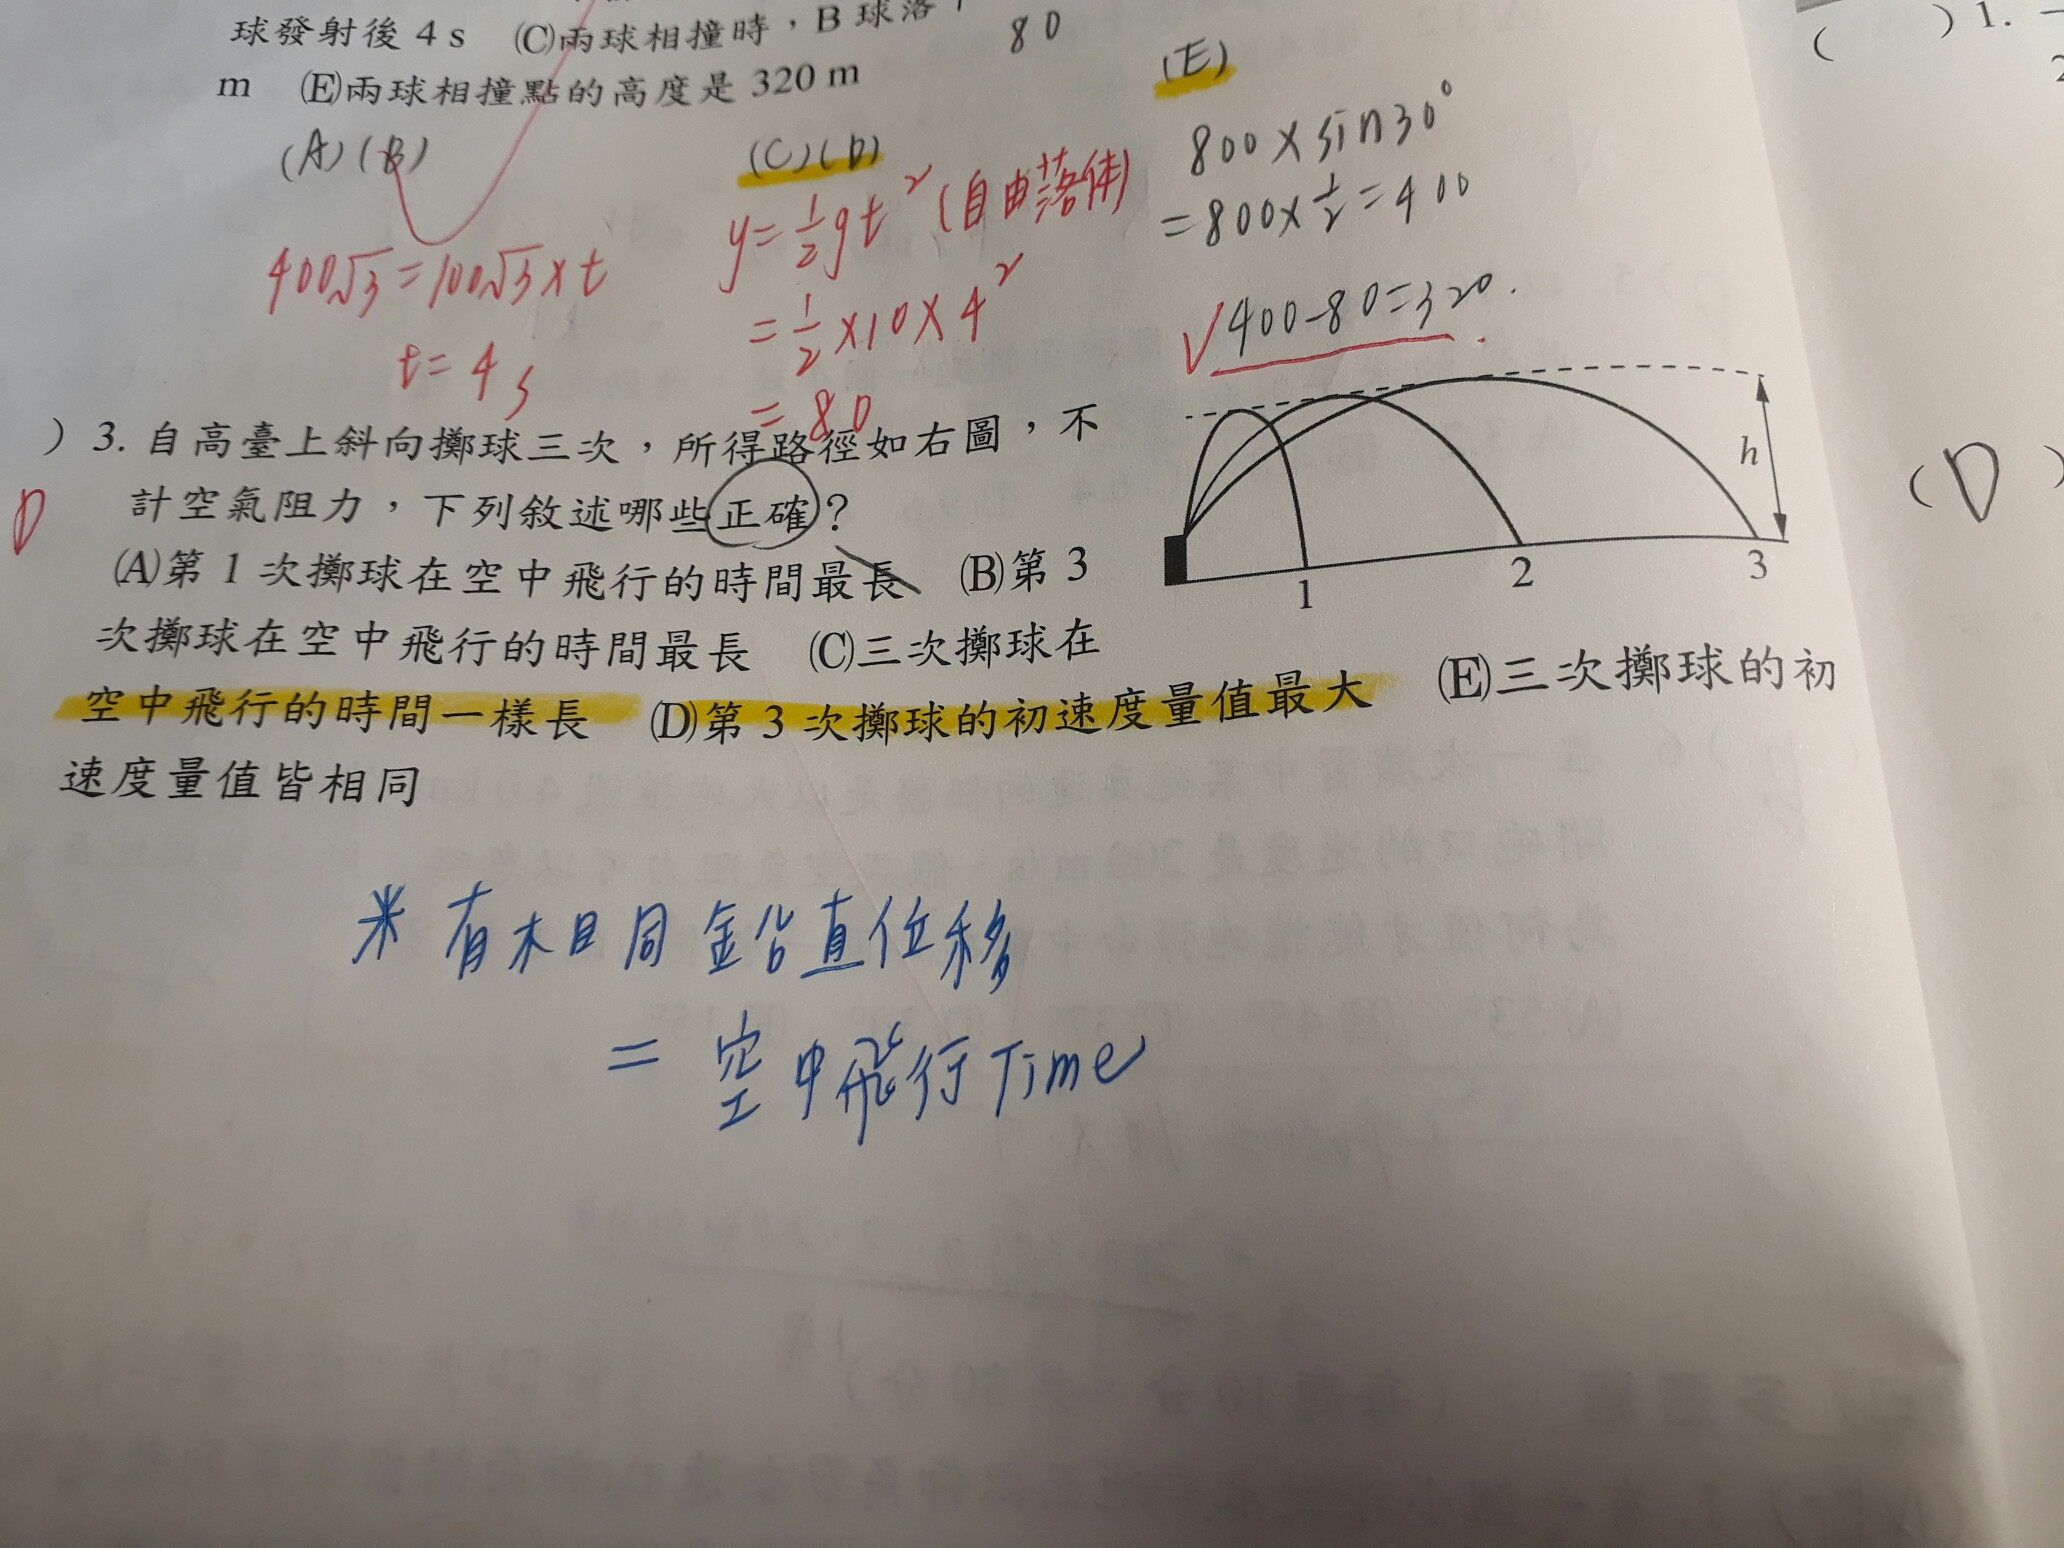 球發射後 4 s (C)兩球相撞時，B 球落
80
m (E)兩球相撞點的高度是 320 m
(A)(B)
400√3=100√3×t
t=4s
(C)(D)
y=½gt²(自由落体)
=½×10×4²
=80
(E)
800×sin30°
=800×½=400
√400-80=320.
) 3. 自高臺上斜向擲球三次，所得路徑如右圖，不
D
計空氣阻力，下列敘述哪些正確？
(A)第 1 次擲球在空中飛行的時間最長 (B)第 3
次擲球在空中飛行的時間最長 (C)三次擲球在
空中飛行的時間一樣長 (D)第 3 次擲球的初速度量值最大 (E)三次擲球的初
速度量值皆相同
h
1 2 3
※ 有相同鉛直位移
= 空中飛行Time
( ) 1.
2
(D)